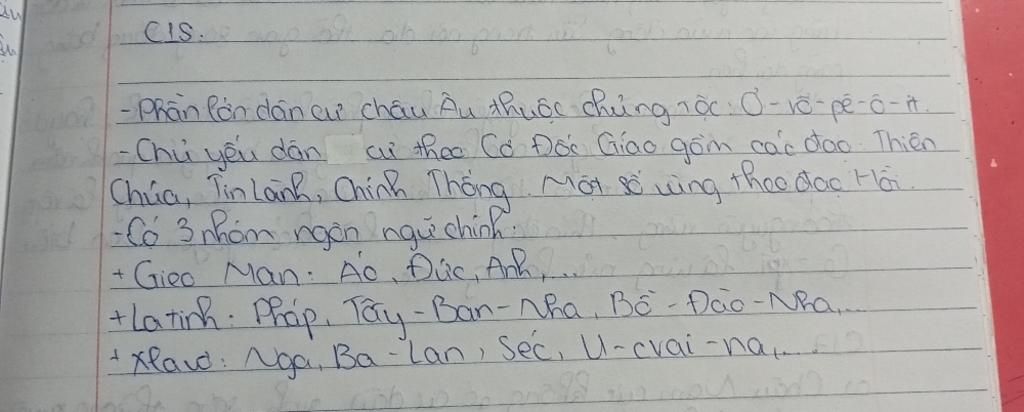 C15.
- Phần lớn dân cư châu Âu thuộc chủng tộc: Ơ-rô-pê-ô-it.
- Chủ yếu dân cư theo Cơ Đốc Giáo gồm các đạo Thiên
Chúa, Tin Lành, Chính Thống. Một số vùng theo đạo Hồi.
- Có 3 nhóm ngôn ngữ chính:
+ Giec Man: Áo, Đức, Anh,...
+ Latinh: Pháp, Tây-Ban-Nha, Bồ-Đào-Nha,...
+ Xlavơ: Nga, Ba-Lan, Séc, U-crai-na,...